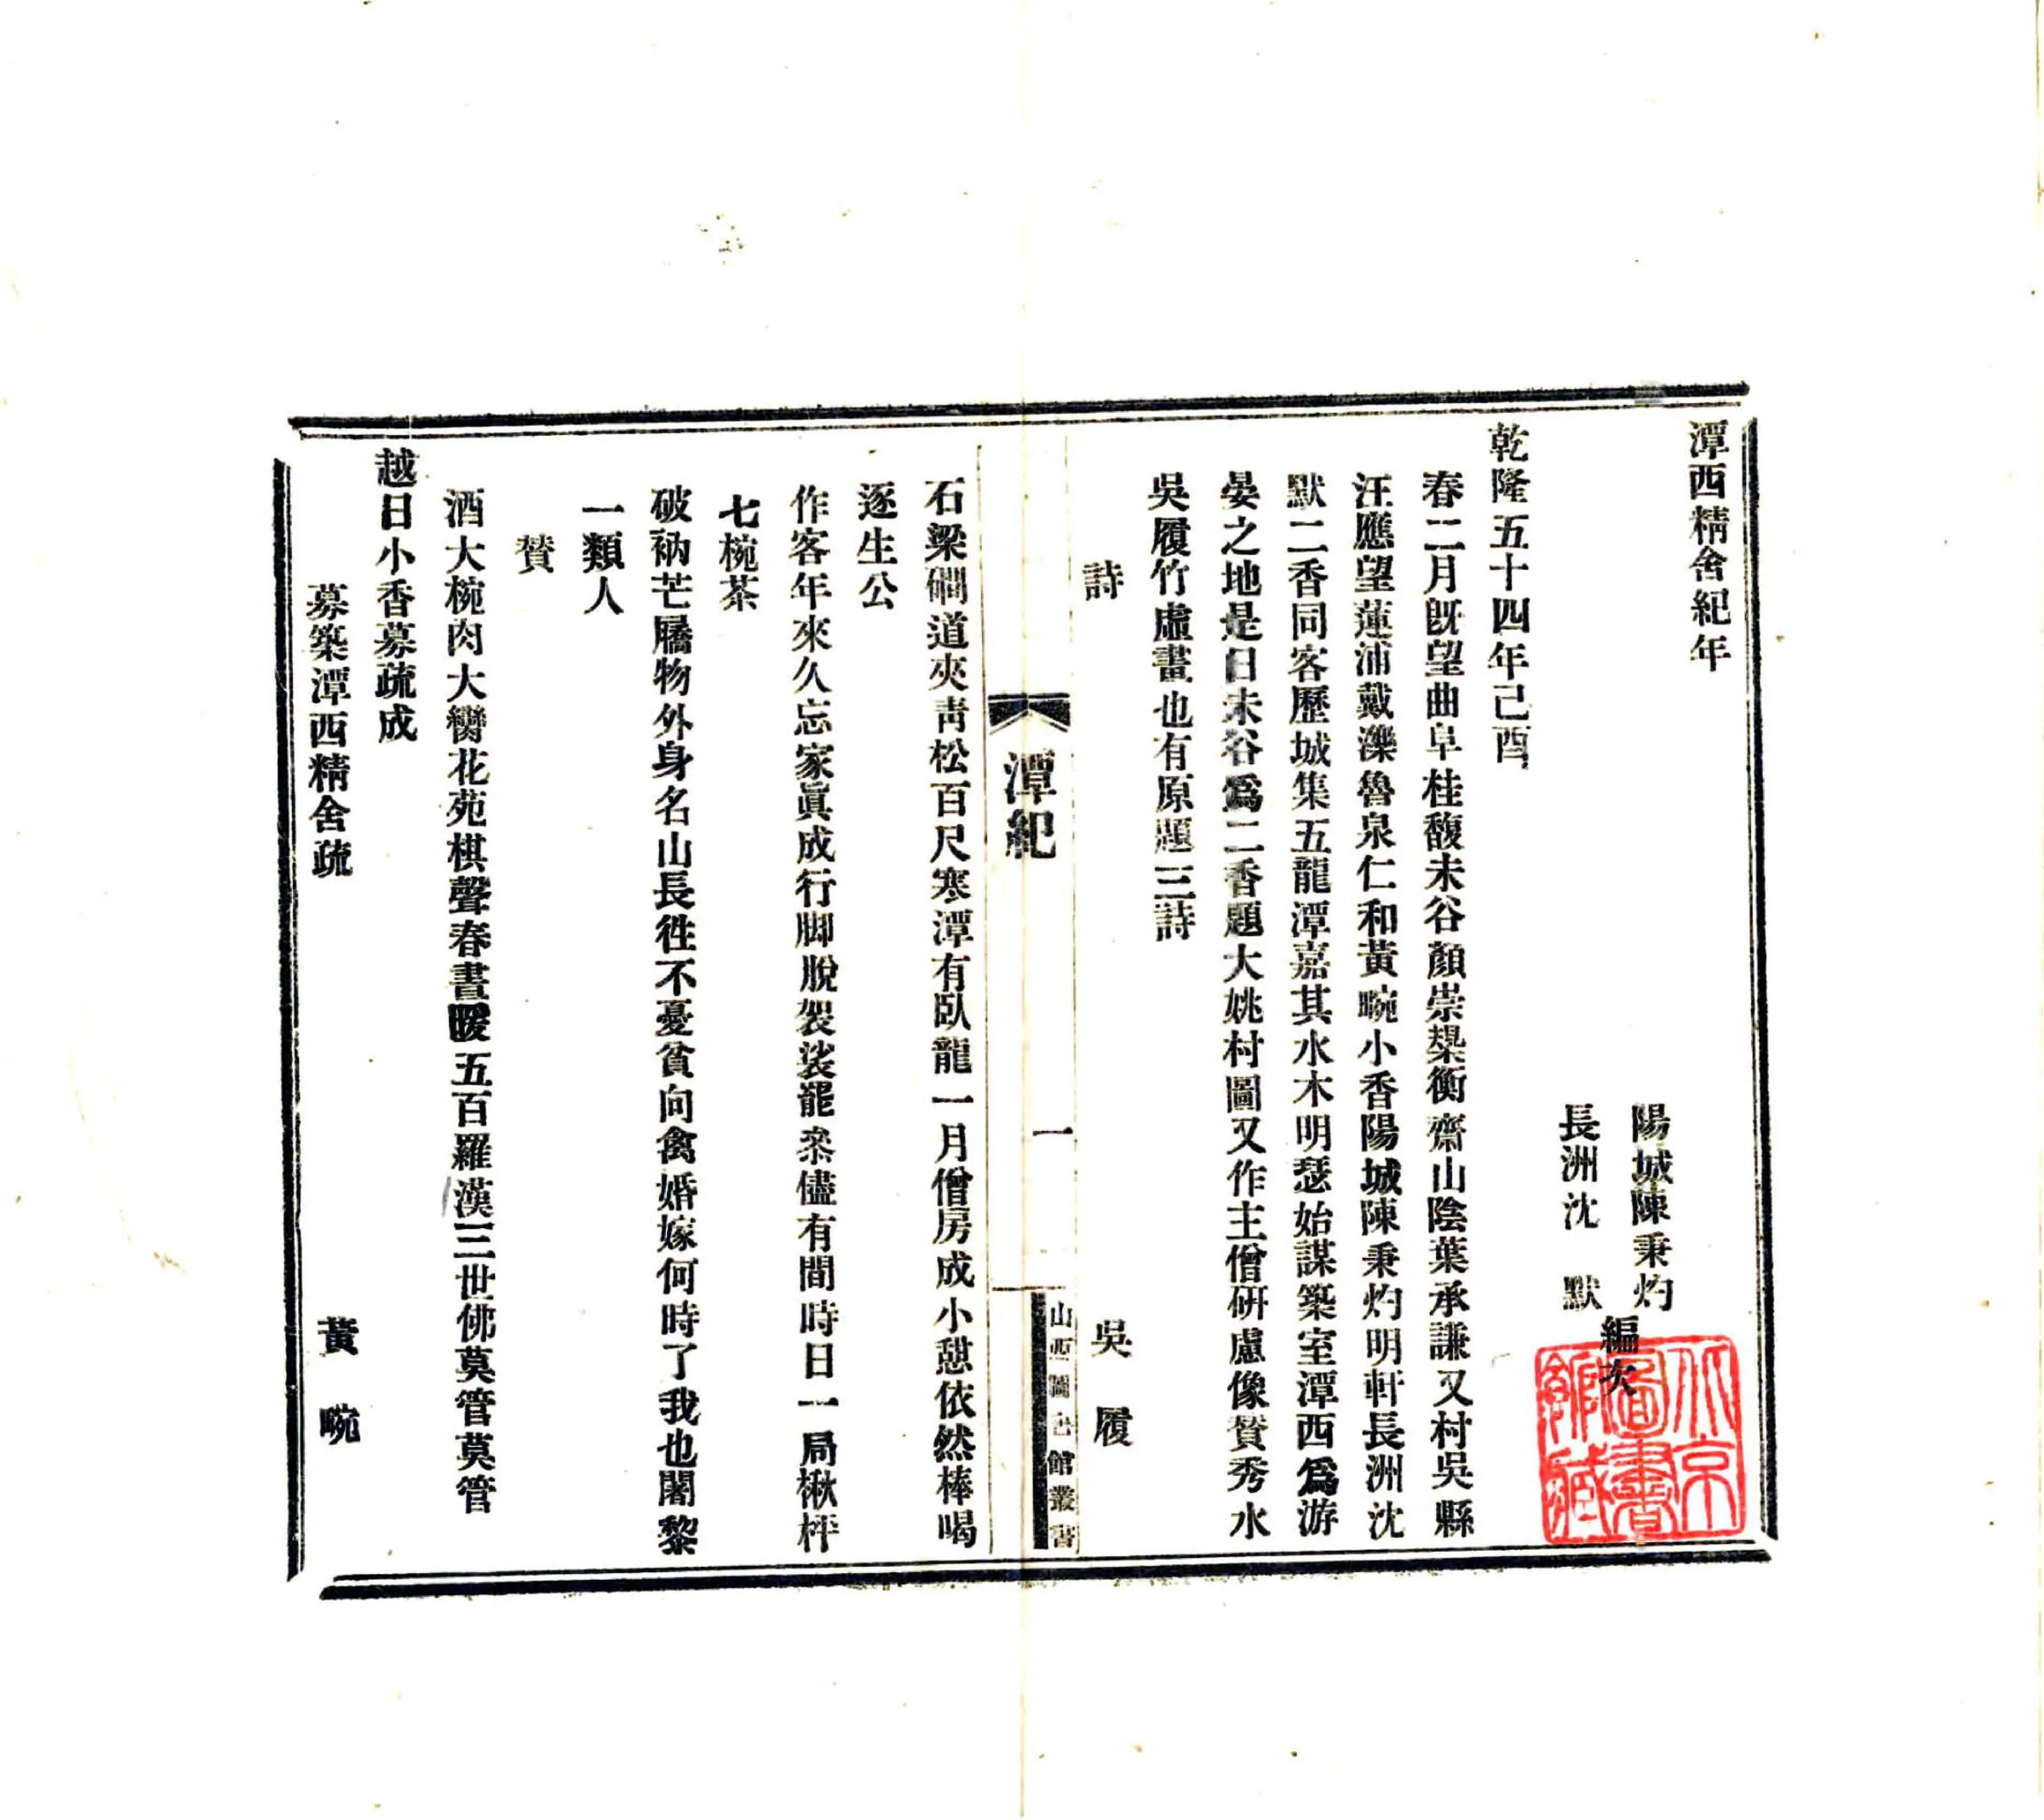 潭西精舍紀年
陽城陳秉灼
長洲沈　默
編次
乾隆五十四年己酉
春二月既望曲阜桂馥未谷顏崇槼衡齋山陰葉承謙又村吳縣
汪應望蓮浦戴濼魯泉仁和黃畹小香陽城陳秉灼明軒長洲沈
默二香同客歷城集五龍潭嘉其水木明瑟始謀築室潭西爲游
晏之地是日未谷爲二香題大姚村圖又作主僧硏慮像贊秀水
吳履竹虛畫也有原題三詩
詩　吳履
潭紀
一
山西圖書館叢書
石梁磵道夾靑松百尺寒潭有臥龍一月僧房成小憇依然棒喝
逐生公
作客年來久忘家眞成行脚脫袈裟罷叅儘有間時日一局楸枰
七椀茶
破衲芒屩物外身名山長徃不憂貧向禽婚嫁何時了我也闍黎
一類人
贊
酒大椀肉大臠花苑棋聲春晝暖五百羅漢三世佛莫管莫管
越日小香募疏成
募築潭西精舍疏　黃畹
北京圖書館藏